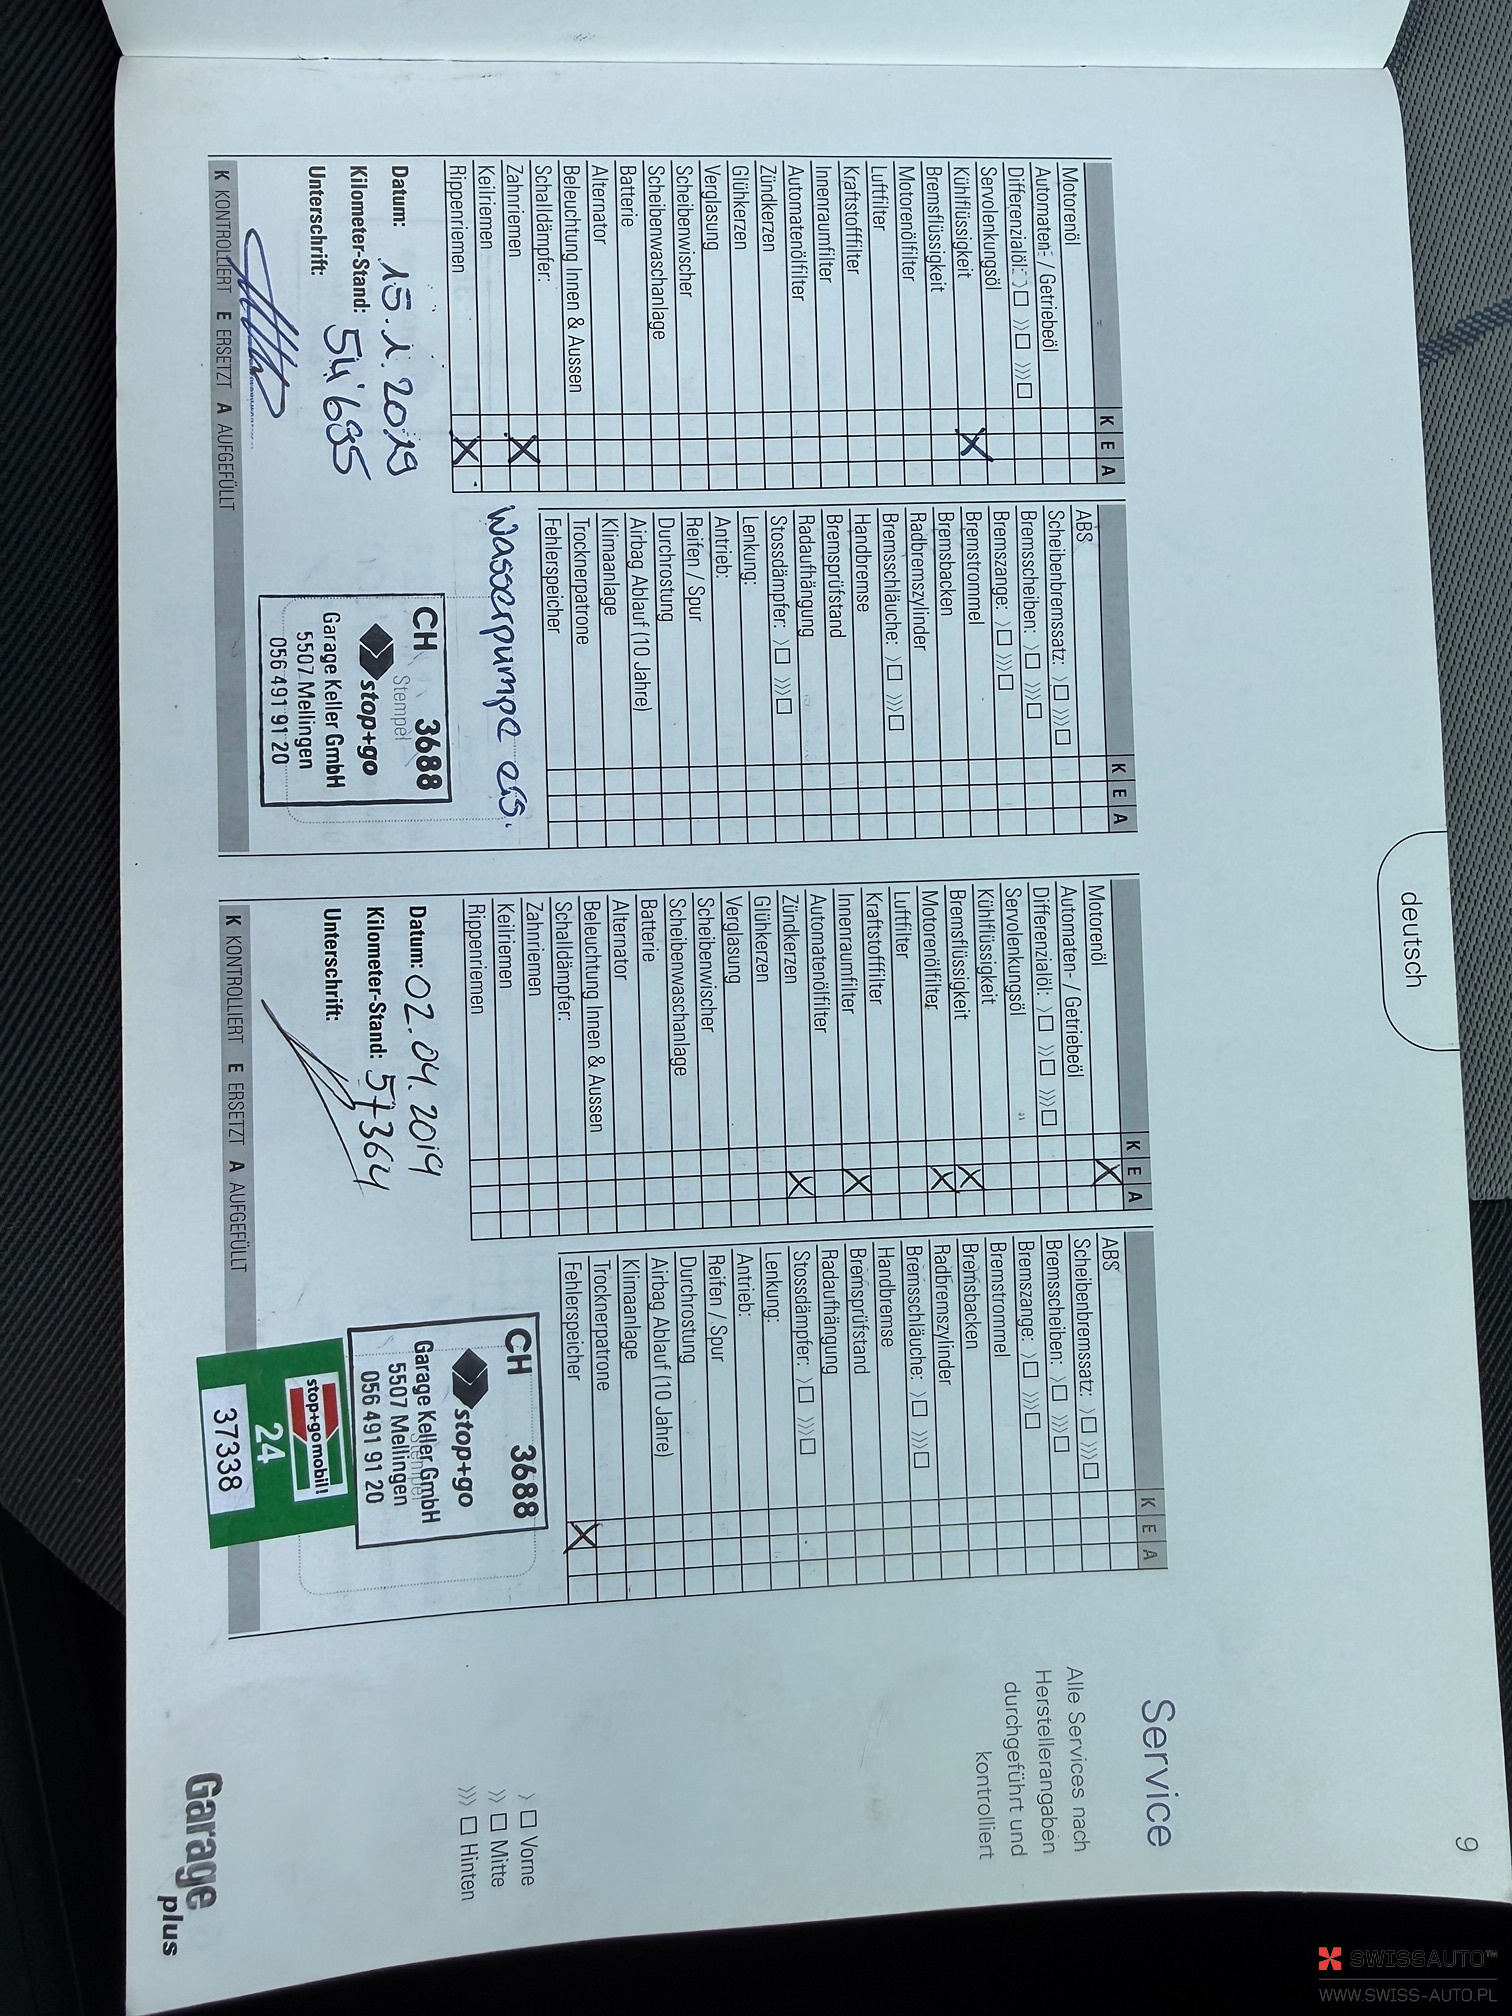 deutsch
9
Service
Alle Services nach
Herstellerangaben
durchgeführt und
kontrolliert
K E A
Motorenöl
Automaten- / Getriebeöl
Differenzialöl: 〉☐ 〉〉☐ 〉〉〉☐
Servolenkungsöl
Kühlflüssigkeit X
Bremsflüssigkeit
Motorenölfilter
Luftfilter
Kraftstofffilter
Innenraumfilter
Automatenölfilter
Zündkerzen
Glühkerzen
Verglasung
Scheibenwischer
Scheibenwaschanlage
Batterie
Alternator
Beleuchtung Innen & Aussen
Schalldämpfer:
Zahnriemen X
Keilriemen
Rippenriemen X
Datum: 15.1.2019
Kilometer-Stand: 54'695
Unterschrift:
K KONTROLLIERT E ERSETZT A AUFGEFÜLLT
K E A
ABS
Scheibenbremssatz: 〉☐ 〉〉〉☐
Bremsscheiben: 〉☐ 〉〉〉☐
Bremszange: 〉☐ 〉〉〉☐
Bremstrommel
Bremsbacken
Radbremszylinder
Bremsschläuche: 〉☐ 〉〉〉☐
Handbremse
Bremsprüfstand
Radaufhängung
Stossdämpfer: 〉☐ 〉〉〉☐
Lenkung:
Antrieb:
Reifen / Spur
Durchrostung
Airbag Ablauf (10 Jahre)
Klimaanlage
Trocknerpatrone
Fehlerspeicher
Wasserpumpe ers.
CH 3688
Stempel
stop+go
Garage Keller GmbH
5507 Mellingen
056 491 91 20
K E A
Motorenöl X
Automaten- / Getriebeöl
Differenzialöl: 〉☐ 〉〉☐ 〉〉〉☐
Servolenkungsöl
Kühlflüssigkeit
Bremsflüssigkeit X
Motorenölfilter X
Luftfilter
Kraftstofffilter
Innenraumfilter X
Automatenölfilter
Zündkerzen X
Glühkerzen
Verglasung
Scheibenwischer
Scheibenwaschanlage
Batterie
Alternator
Beleuchtung Innen & Aussen
Schalldämpfer:
Zahnriemen
Keilriemen
Rippenriemen
Datum: 02.04.2019
Kilometer-Stand: 57364
Unterschrift:
K KONTROLLIERT E ERSETZT A AUFGEFÜLLT
K E A
ABS
Scheibenbremssatz: 〉☐ 〉〉〉☐
Bremsscheiben: 〉☐ 〉〉〉☐
Bremszange: 〉☐ 〉〉〉☐
Bremstrommel
Bremsbacken
Radbremszylinder
Bremsschläuche: 〉☐ 〉〉〉☐
Handbremse
Bremsprüfstand
Radaufhängung
Stossdämpfer: 〉☐ 〉〉〉☐
Lenkung:
Antrieb:
Reifen / Spur
Durchrostung
Airbag Ablauf (10 Jahre)
Klimaanlage
Trocknerpatrone
Fehlerspeicher X
CH 3688
stop+go
Garage Keller GmbH
Stempel
5507 Mellingen
056 491 91 20
stop+gomobil!
24
37338
〉☐ Vorne
〉〉☐ Mitte
〉〉〉☐ Hinten
Garage plus
SWISSAUTO™
WWW.SWISS-AUTO.PL